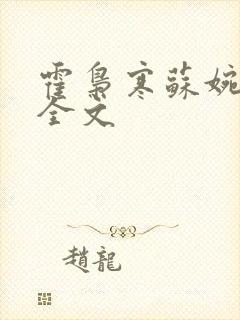 霍梟寒蘇婉
全文
趙龍